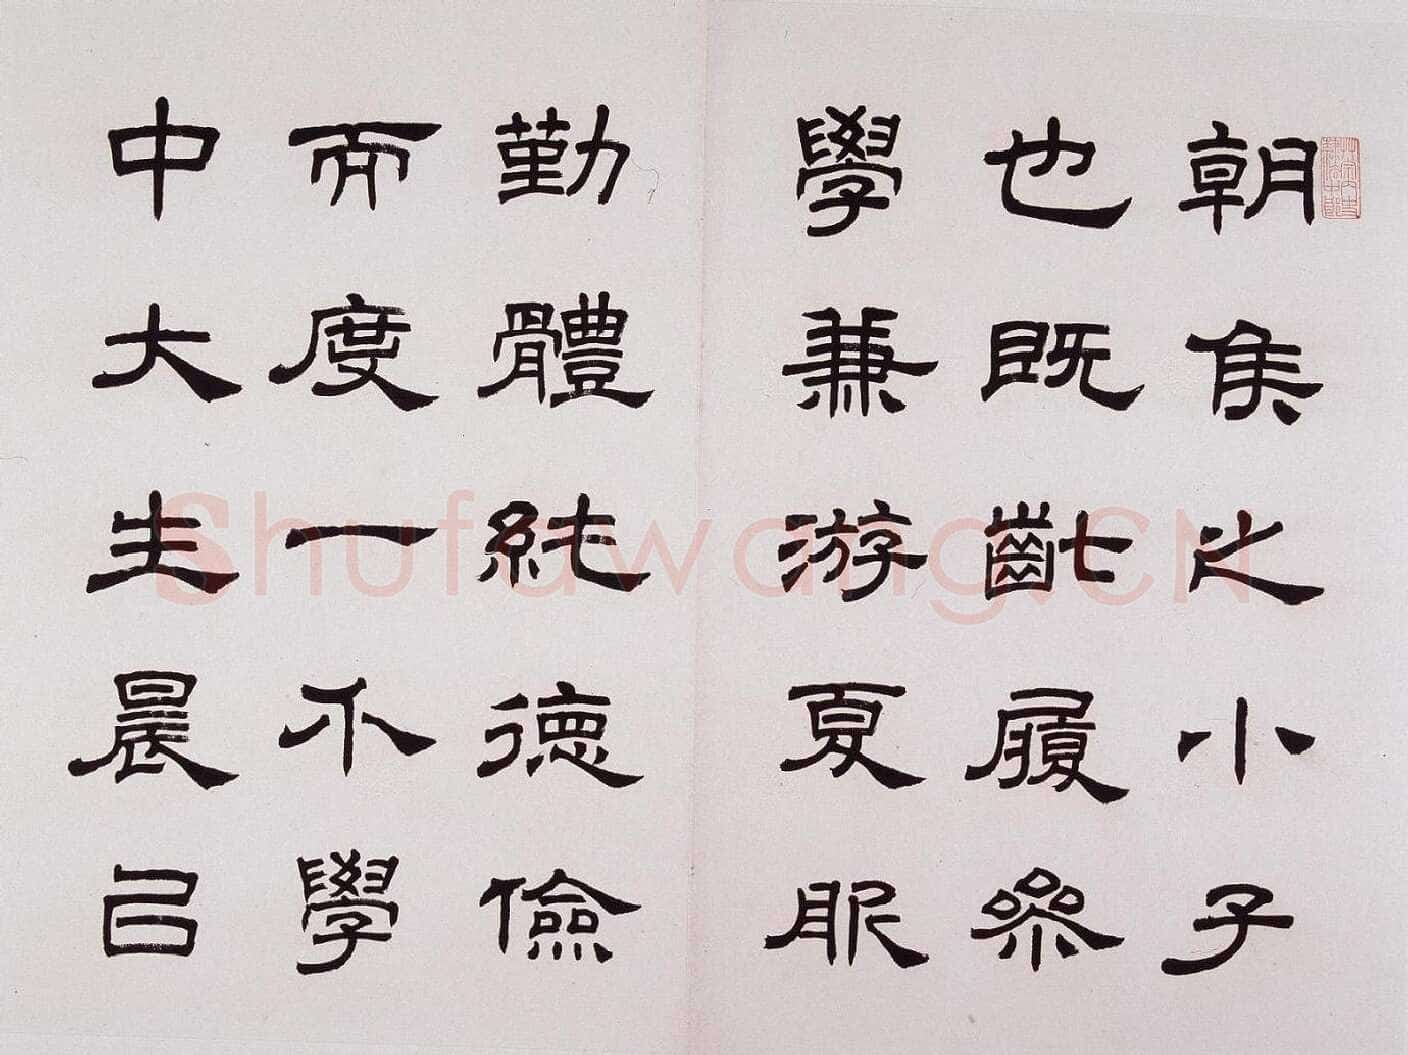 朝侯之小子
也既齔履參
學兼游夏服
勤體純德儉
而度一不學
中大生晨㠯
Shufawang.CN